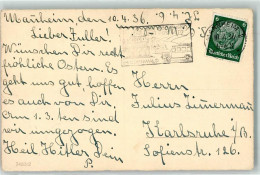 Mannheim den 10.4.36.
Lieber
Wünschen Dir recht
fröhliche Ostern. Es
geht uns gut, hoffen
es auch von Dir.
Am 1.3. ten sind
wir umgezogen.
Heil Hitler Dein
P.
Herrn
Julius
Karlsruhe i/B.
Sofienstr. 126.
6
Deutsches Reich